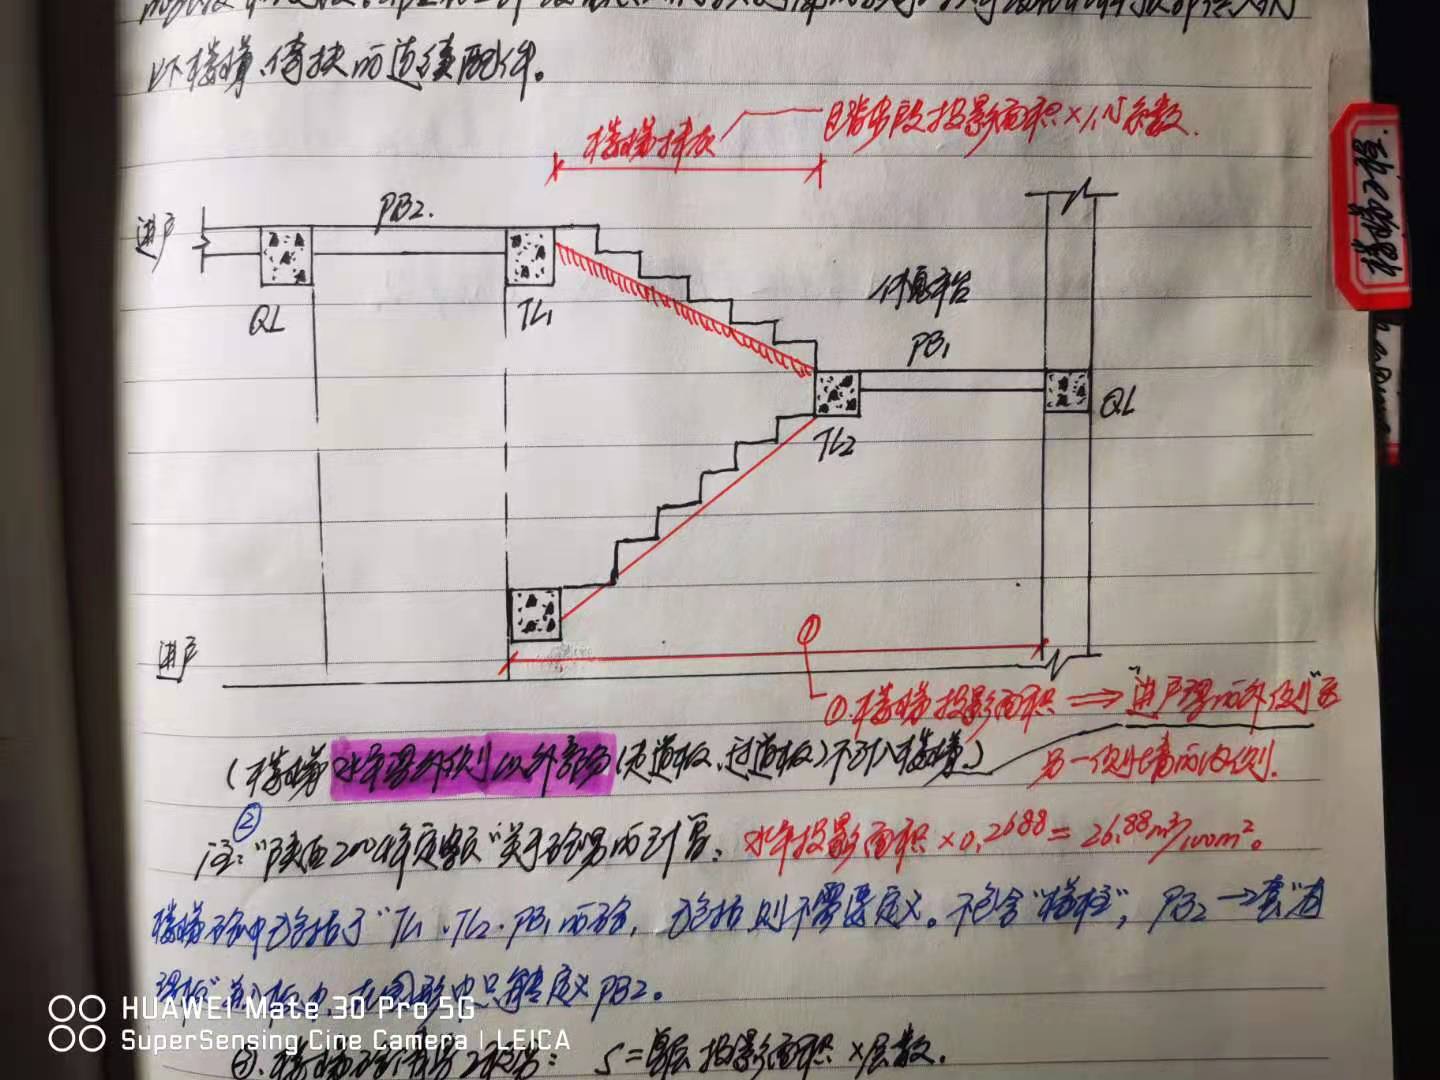 以下楼梯、
楼梯梯板
踏步段投影面积×1.15系数.
进户
PB2.
QL
TL1
休息平台
PB1
QL
TL2
进户
①
①.楼梯投影面积 ⇒ "进户梁的外侧"至
另一侧墙的内侧.
(楼梯水平梁外侧以外部分(走道板、过道板)不列入楼梯.)
②
注:"陕西2004年定额"关于砼量的计算:
水平投影面积×0.2688=26.88m³/100m²。
楼梯砼中已包括了"TL1.TL2.PB1的砼,已包括则不需要定义。不包含"梯柱",PB2→套"有
梁板" 在图形中只能定义PB2。
S=单层投影面积×层数.
HUAWEI Mate 30 Pro 5G
SuperSensing Cine Camera | LEICA